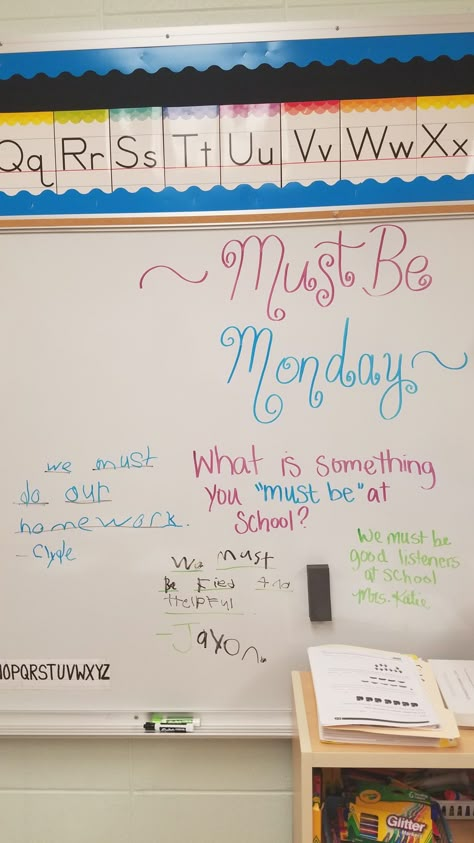 Qq Rr Ss Tt Uu Vv Ww Xx
~ Must Be
Monday ~
What is something
you "must be" at
school?
we must
do our
homework.
- Clyde
We must
Helpful
- Jayon
We must be
good listeners
at school
- Mrs. Katie
NOPQRSTUVWXYZ
Crayola
Glitter